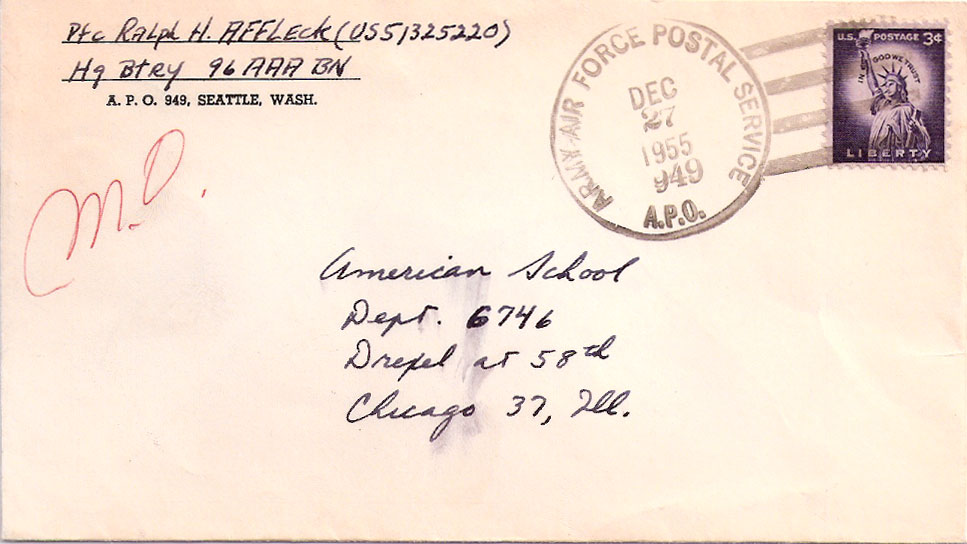 Pfc Ralph H. AFFLECK (US51325220)
Hq Btry 96 AAA BN
A. P. O. 949, SEATTLE, WASH.
M.O.
ARMY-AIR FORCE POSTAL SERVICE
DEC
27
1955
949
A.P.O.
U.S. POSTAGE 3¢
IN GOD WE TRUST
LIBERTY
American School
Dept. 6746
Drexel at 58th
Chicago 37, Ill.